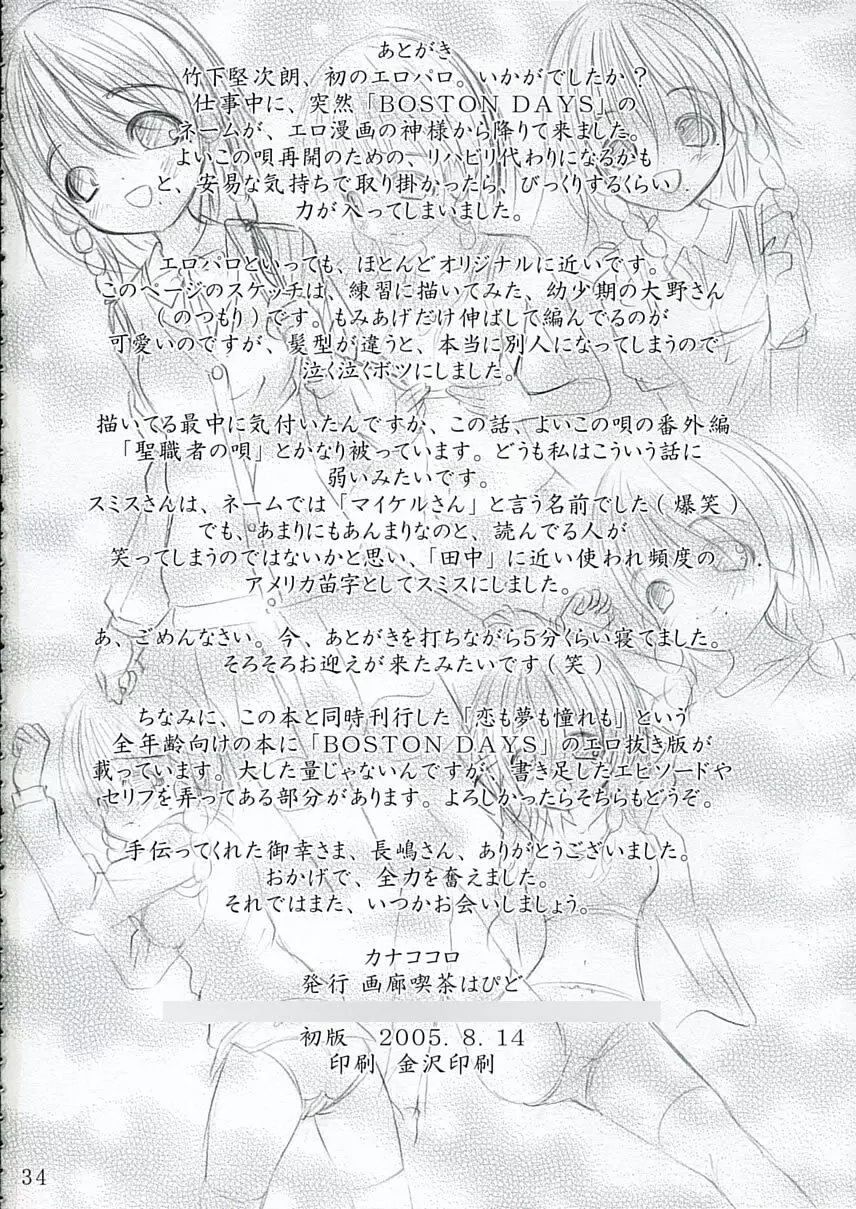 あとがき
竹下堅次朗、初のエロパロ。いかがでしたか？
仕事中に、突然「BOSTON DAYS」の
ネームが、エロ漫画の神様から降りて来ました。
よいこの唄再開のための、リハビリ代わりになるかも
と、安易な気持ちで取り掛かったら、びっくりするくらい
力が入ってしまいました。
エロパロといっても、ほとんどオリジナルに近いです。
このページのスケッチは、練習に描いてみた、幼少期の大野さん
（のつもり）です。もみあげだけ伸ばして編んでるのが
可愛いのですが、髪型が違うと、本当に別人になってしまうので
泣く泣くボツにしました。
描いてる最中に気付いたんですか、この話、よいこの唄の番外編
「聖職者の唄」とかなり被っています。どうも私はこういう話に
弱いみたいです。
スミスさんは、ネームでは「マイケルさん」と言う名前でした（爆笑）
でも、あまりにもあんまりなのと、読んでる人が
笑ってしまうのではないかと思い、「田中」に近い使われ頻度の
アメリカ苗字としてスミスにしました。
あ、ごめんなさい。今、あとがきを打ちながら5分くらい寝てました。
そろそろお迎えが来たみたいです（笑）
ちなみに、この本と同時刊行した「恋も夢も憧れも」という
全年齢向けの本に「BOSTON DAYS」のエロ抜き版が
載っています。大した量じゃないんですが、書き足したエピソードや
セリフを弄ってある部分があります。よろしかったらそちらもどうぞ。
手伝ってくれた御幸さま、長嶋さん、ありがとうございました。
おかげで、全力を奮えました。
それではまた、いつかお会いしましょう。
カナココロ
発行 画廊喫茶はぴど
初版 2005. 8. 14
印刷 金沢印刷
34